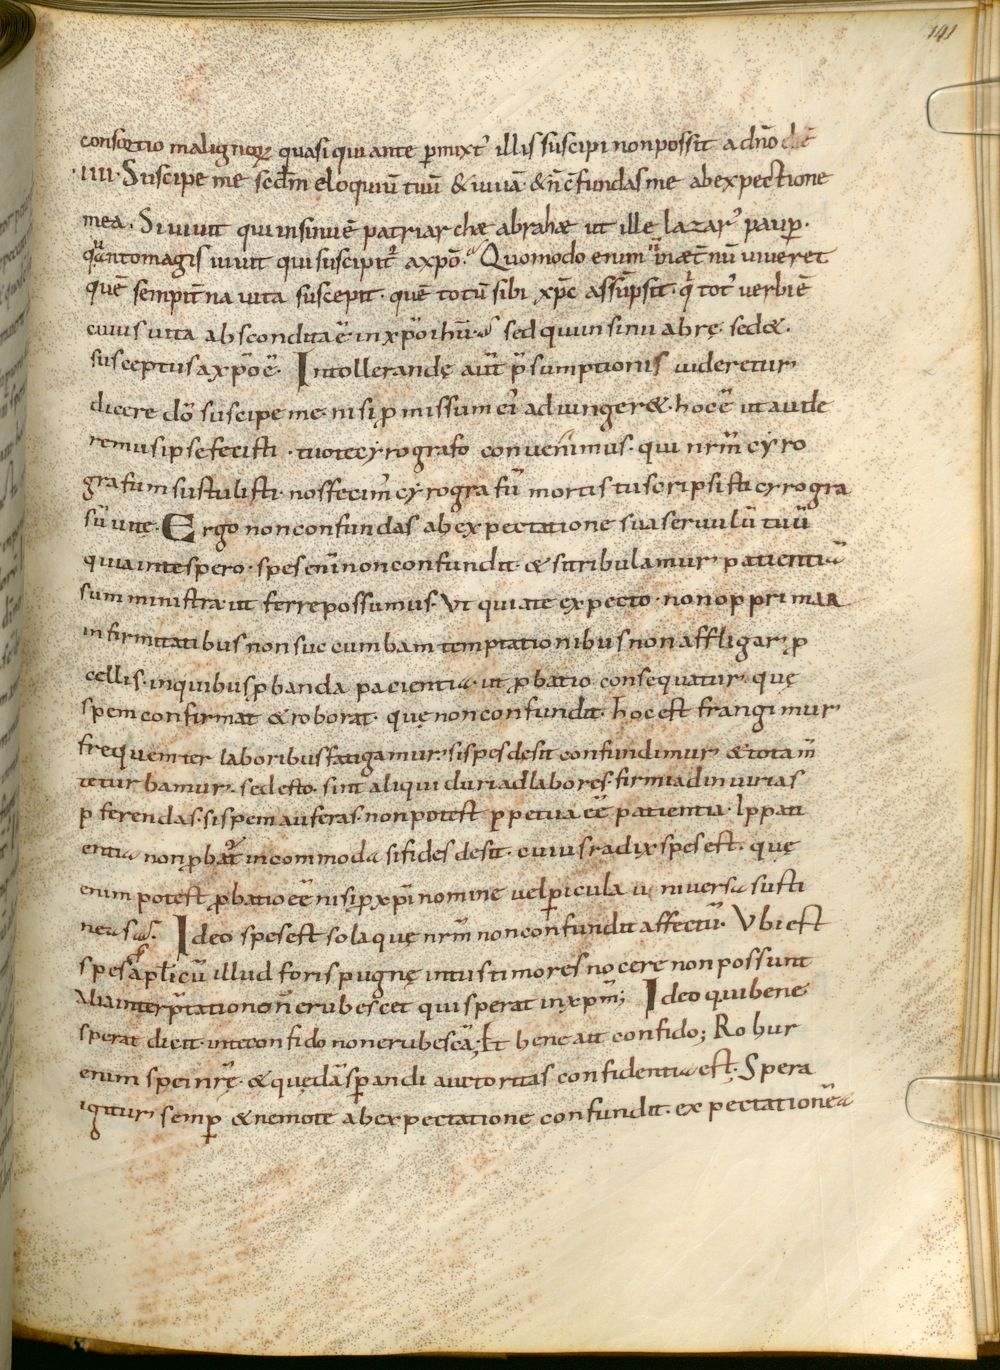 141
consortio malignorꝝ quasi qui ante ꝑmixtꝰ illis suscipi non possit a dn̄o dic̄
·IIII· Suscipe me scd̄m eloquiū tuū & uiuā & n̄ c̄fundas me ab expectione
mea. Si uiuit qui in sinu ē patriarchæ abrahæ ut ille lazarꝰ pauꝑ.
quanto magis uiuit qui suscipitᷣ a xp̄o. Quomodo enim in æt̄nū uiueret
quē sempit̄na uita suscepit. quē totū sibi xp̄c assūpsit. qͥ totꝰ uerbi ē
cuius uita abscondita ē in xp̄o ihū. sed qui in sinu abrę. sed &.
susceptus a xp̄o ē. Intollerandę aut̄ p̄sumptionis uideretur
dicere dō suscipe me. nisi ꝓmissum ei adiunger&. hoc ē ut aude
remus ipse fecisti. tuo te cyrografo conuenimus. qui nr̄m cyro
grafum sustulisti. nos fecim̄ cyrografū mortis tu scripsisti cyrogra
fū uite. Ergo non confundas ab expectatione sua seruulū tuū
quia in te spero. spes enī non confundit. & si tribulamur patientiā
sumministra ut ferre possumus. Vt qui a te expecto. non opprimar
infirmitatibus non succumbam temptationibus non affligar ꝓ
cellis. in quibus ꝓbanda pacientia. ut ꝓbatio consequatur. quę
spem confirmat & roborat. quę non confundit. hoc est frangimur
frequenter laboribus fatigamur. si spes desit confundimur & tota m̄
te turbamur. sed esto. sint aliqui duri ad labores. firmi ad iniurias
ꝑferendas. si spem auferas. non potest ꝑpetua eē patientia. Ip̄ pati
entia non ꝓbat̄ incommoda si fides desit. cuius radix spes est. quę
enim potest ꝓbatio eē nisi ꝑ xp̄i nomine uel ꝑicula uniuersa susti
neas. Ideo spes est sola quę nr̄m non confundit affectū. Vbi est
spes ap̄licū illud foris pugnę intus timores nocere non possunt
Alia interp̄tatione n̄ erubescet qui sperat in xp̄m; Ideo qui bene
sperat dicit. in te confido non erubescā; Et bene ait confido; Robur
enim spei nr̄ę. & quędā sꝑandi auctoritas confidentia est. Spera
igitur semꝑ & nemo te ab expectatione confundit. expectationē a